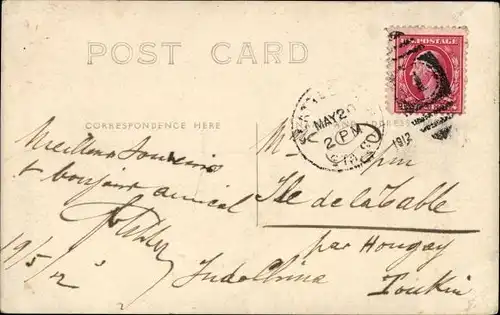 POST CARD
POSTAGE
CORRESPONDENCE HERE
AND ADDRESS
MAY 20
2 PM
1912
Meilleur Souvenir
& bonjour amical
19/5/12
M
Ile de la Table
par Hongay
Tonkin
Indochina